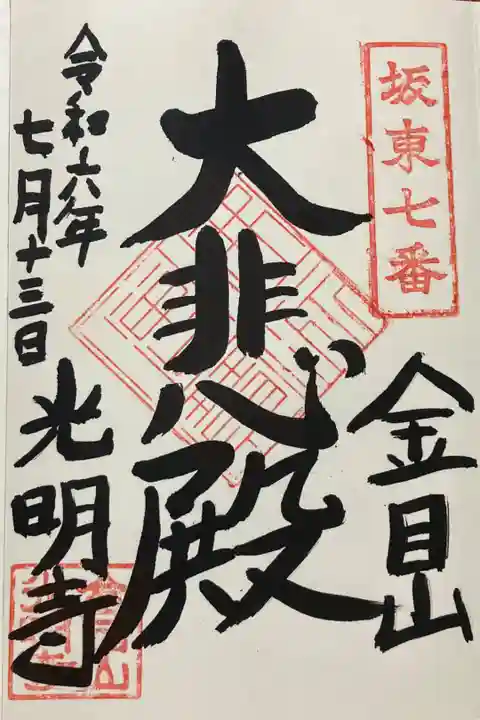 坂東七番
金目山
大悲殿
令和六年
七月十三日
光明寺